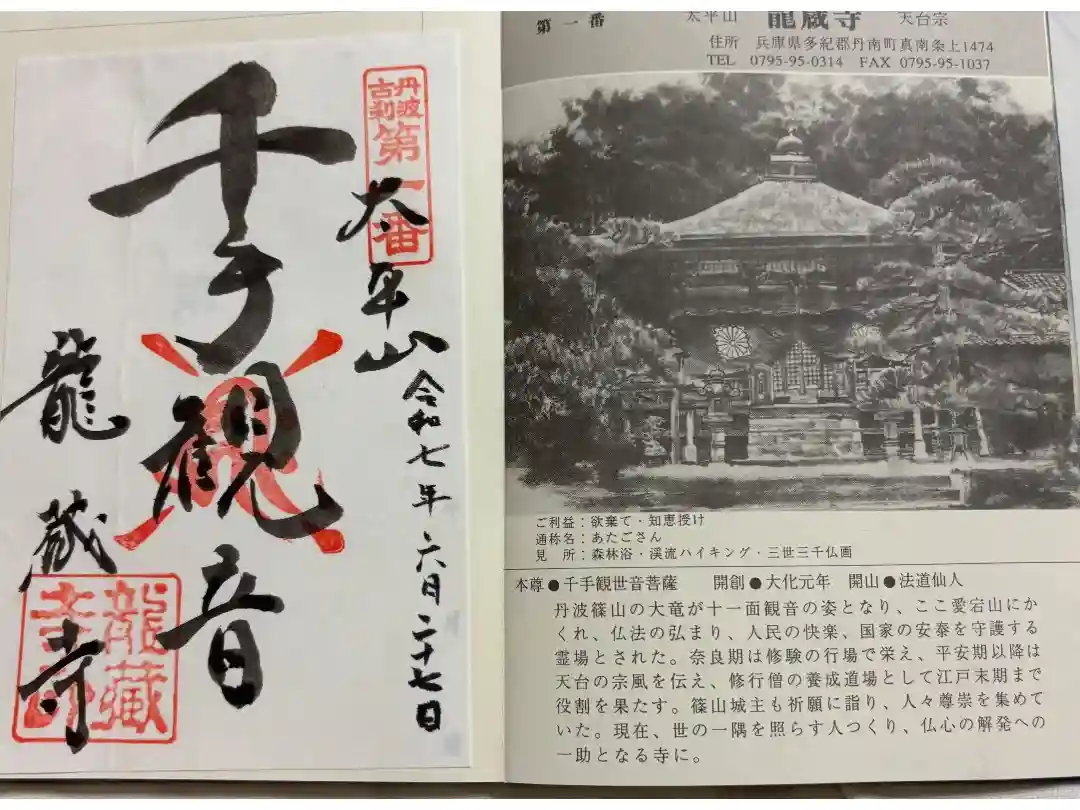 丹波
古刹
第一番
太平山
令和七年六月二十七日
千手観音
龍蔵寺
龍藏
寺印
第一番 太平山 龍蔵寺 天台宗
住所 兵庫県多紀郡丹南町真南条上1474
TEL 0795-95-0314 FAX 0795-95-1037
ご利益：欲棄て・知恵授け
通称名：あたごさん
見　所：森林浴・渓流ハイキング・三世三千仏画
本尊●千手観世音菩薩 開創●大化元年 開山●法道仙人
丹波篠山の大竜が十一面観音の姿となり、ここ愛宕山にか
くれ、仏法の弘まり、人民の快楽、国家の安泰を守護する
霊場とされた。奈良期は修験の行場で栄え、平安期以降は
天台の宗風を伝え、修行僧の養成道場として江戸末期まで
役割を果たす。篠山城主も祈願に詣り、人々尊崇を集めて
いた。現在、世の一隅を照らす人つくり、仏心の解発への
一助となる寺に。